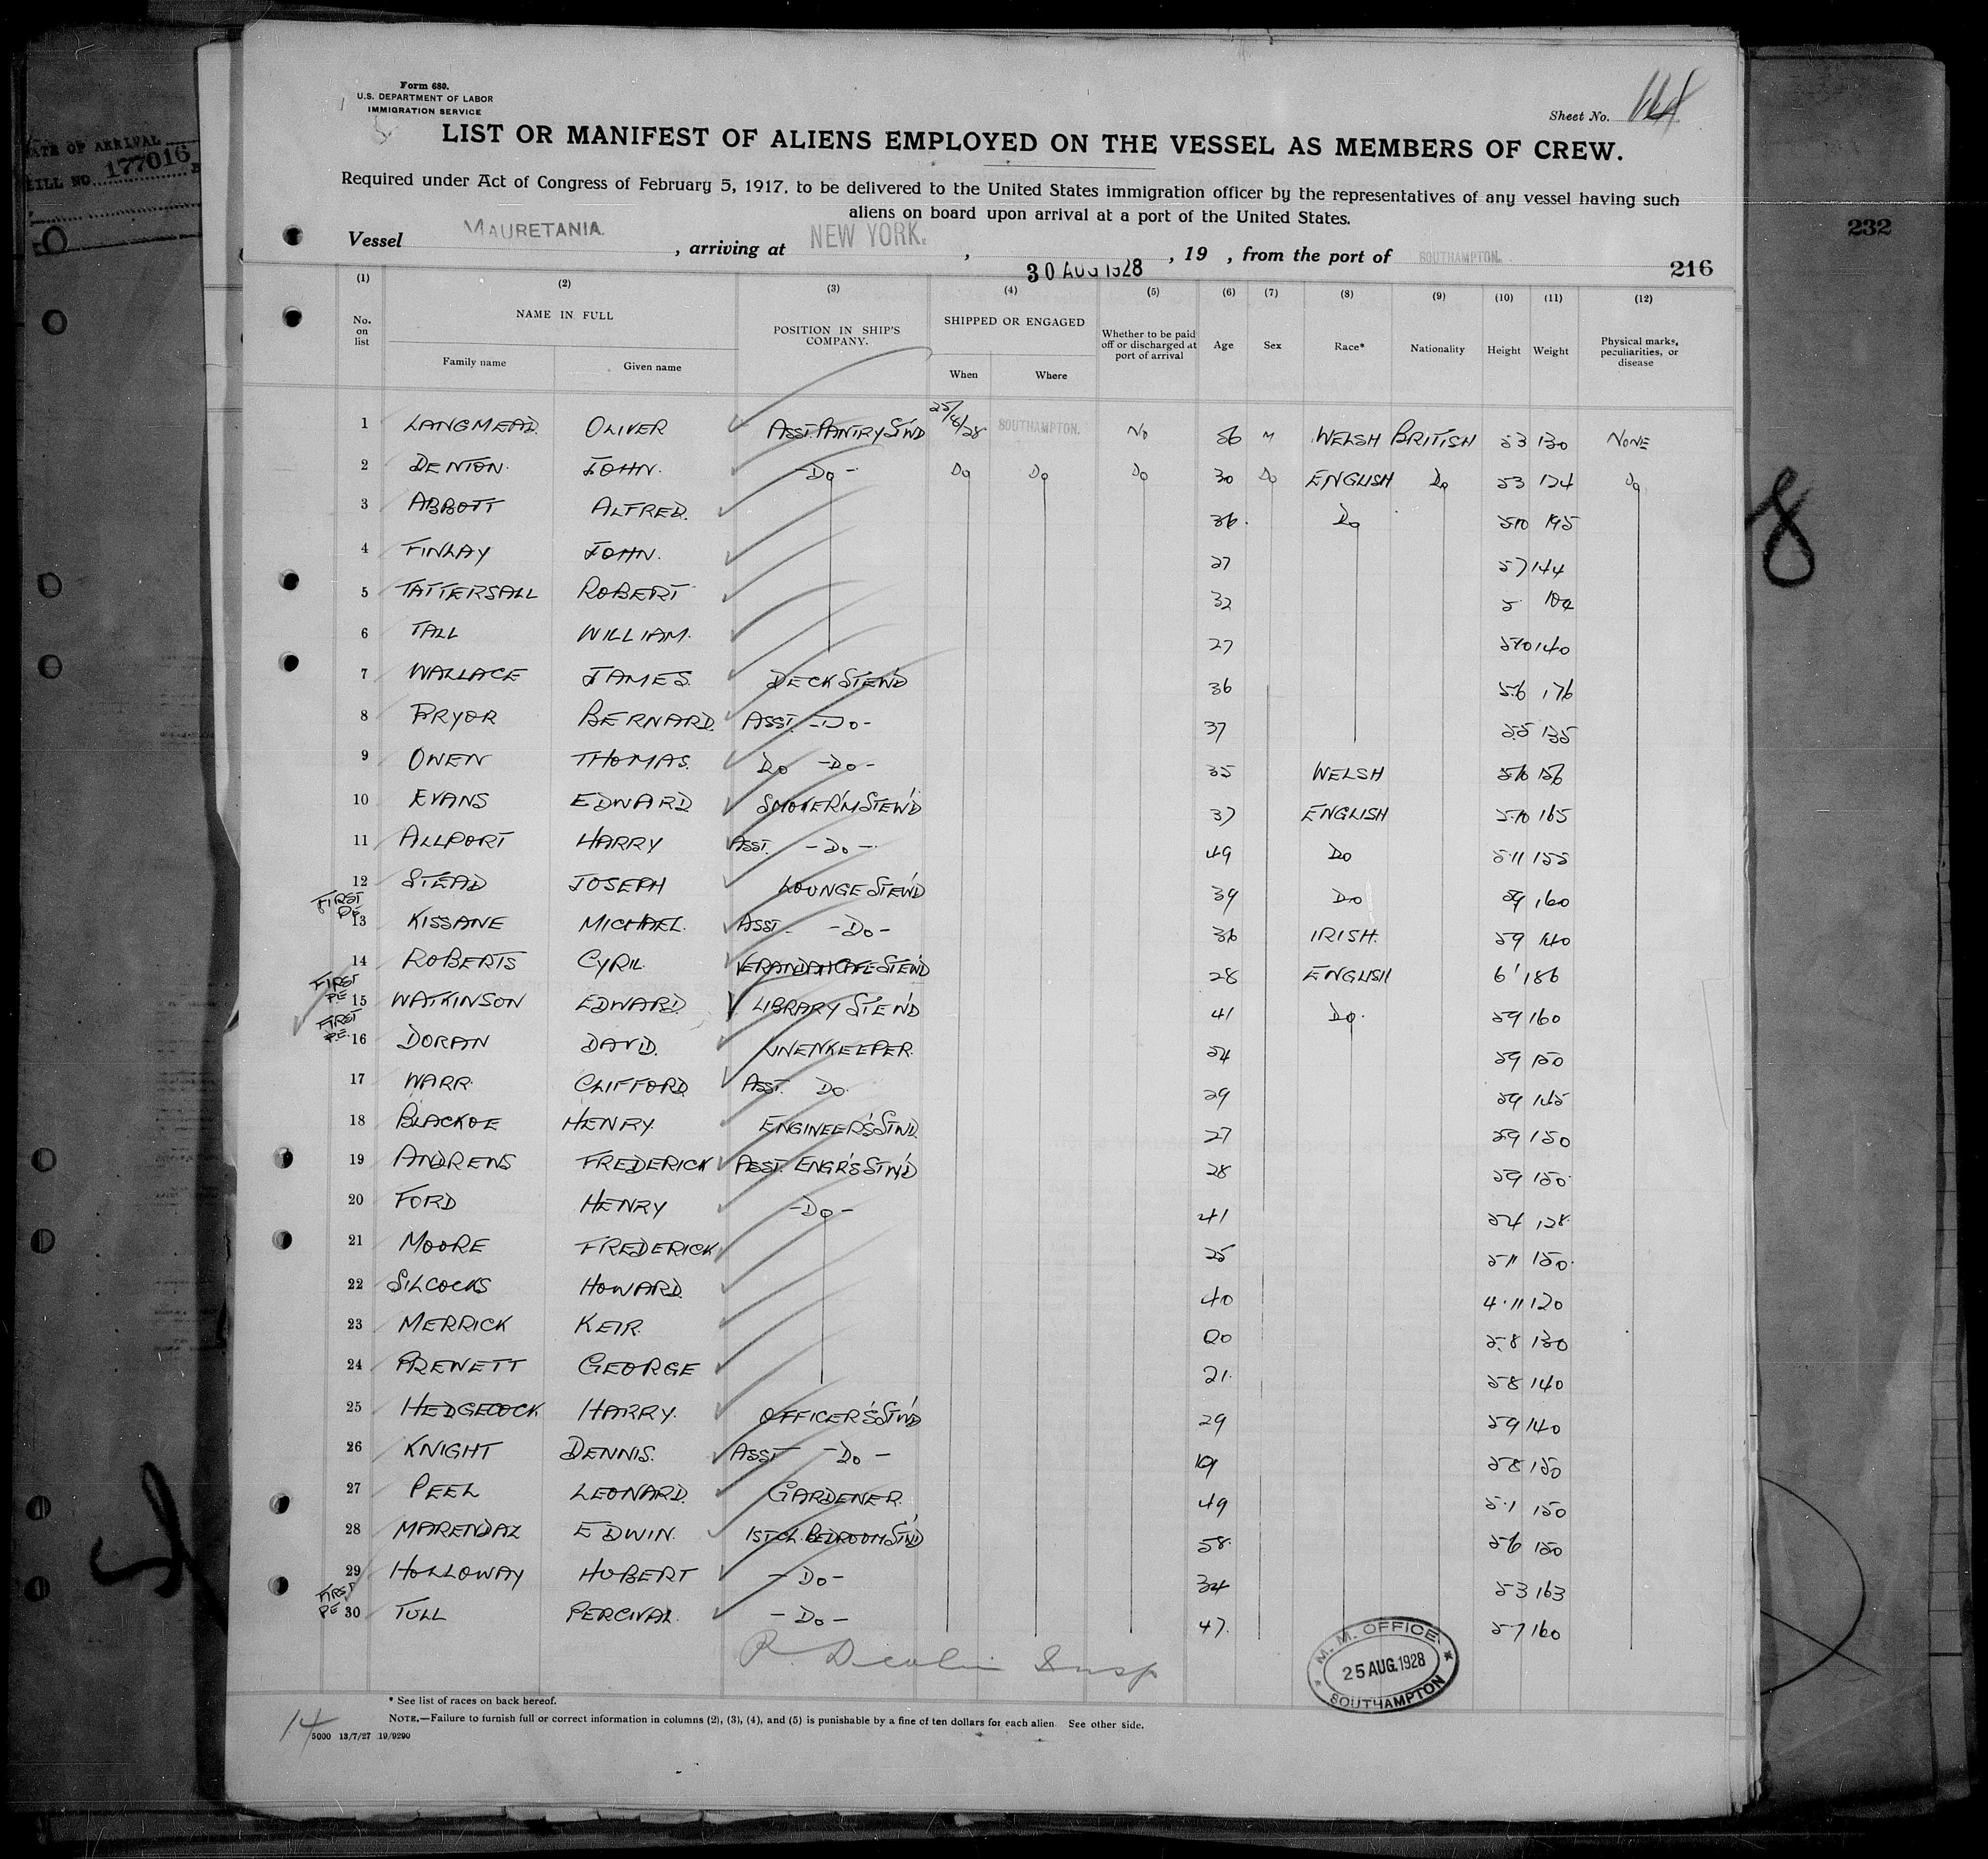 Form 680.
U.S. DEPARTMENT OF LABOR
IMMIGRATION SERVICE
Sheet No.
LIST OR MANIFEST OF ALIENS EMPLOYED ON THE VESSEL AS MEMBERS OF CREW.
Required under Act of Congress of February 5, 1917, to be delivered to the United States immigration officer by the representatives of any vessel having such
aliens on board upon arrival at a port of the United States.
Vessel MAURETANIA. , arriving at NEW YORK. , 30 AUG 1928 , 19 , from the port of SOUTHAMPTON.
216
DATE OF ARRIVAL
177016
232
8
(1) (2) (3) (4) (5) (6) (7) (8) (9) (10) (11) (12)
No. on list NAME IN FULL Family name Given name POSITION IN SHIP'S COMPANY. SHIPPED OR ENGAGED When Where Whether to be paid off or discharged at port of arrival Age Sex Race* Nationality Height Weight Physical marks, peculiarities, or disease
1 LANGMEAD. OLIVER ASST. PANTRY STWD 25/8/28 SOUTHAMPTON. No 56 M WELSH BRITISH 53 130 NONE
2 DENTON. JOHN. -Do- Do Do Do 30 Do ENGLISH Do 53 124 Do
3 ABBOTT ALFRED. 36. Do 510 195
4 FINLAY JOHN. 27 57 144
5 TATTERSALL ROBERT 32 5
6 TALL WILLIAM. 27 510 140
7 WALLACE JAMES. DECK STEWD 36 5.6 176
8 PRYOR BERNARD. ASST. -Do- 37 5.5 135
9 OWEN THOMAS. Do -Do- 35 WELSH 156
10 EVANS EDWARD SMOKER'M STEW'D 37 ENGLISH 5.10 165
11 ALLPORT HARRY ASST. -Do- 49 Do 5.11 155
12 STEAD JOSEPH LOUNGE STEW'D 39 Do 59 160
FIRST PE 13 KISSANE MICHAEL. ASST. -Do- 36 IRISH. 59 140
14 ROBERTS CYRIL. VERANDAH CAFE STEW'D 28 ENGLISH 6' 186
FIRST PE 15 WATKINSON EDWARD. LIBRARY STEW'D 41 Do. 59 160
FIRST P.E. 16 DORAN DAVID. LINENKEEPER. 54 59 150
17 WARR CLIFFORD ASST. Do. 29 59 145
18 BLACKOE HENRY. ENGINEER'S STWD. 27 59 150
19 ANDREWS FREDERICK ASST. ENGR'S STW'D 28 59 150
20 FORD HENRY -Do- 41 54 128
21 MOORE FREDERICK 25 511 150
22 SILCOCKS HOWARD. 40 4.11 120
23 MERRICK KEIR. 20 5.8 130
24 PREWETT GEORGE 21. 58 140
25 HEDGECOCK HARRY. OFFICER'S STW'D 29 59 140
26 KNIGHT DENNIS. ASST -Do- 19 58 150
27 PEEL LEONARD. GARDENER. 49 5.1 150
28 MARENDAZ EDWIN. 1ST CL. BEDROOM STWD 58. 56 150
29 HOLLOWAY HUBERT -Do- 34 53 163
FIRST PE 30 TULL PERCIVAL. -Do- 47. 57 160
M. M. OFFICE
25 AUG. 1928
SOUTHAMPTON
* See list of races on back hereof.
NOTE.—Failure to furnish full or correct information in columns (2), (3), (4), and (5) is punishable by a fine of ten dollars for each alien. See other side.
14
5000 13/7/27 19/9290